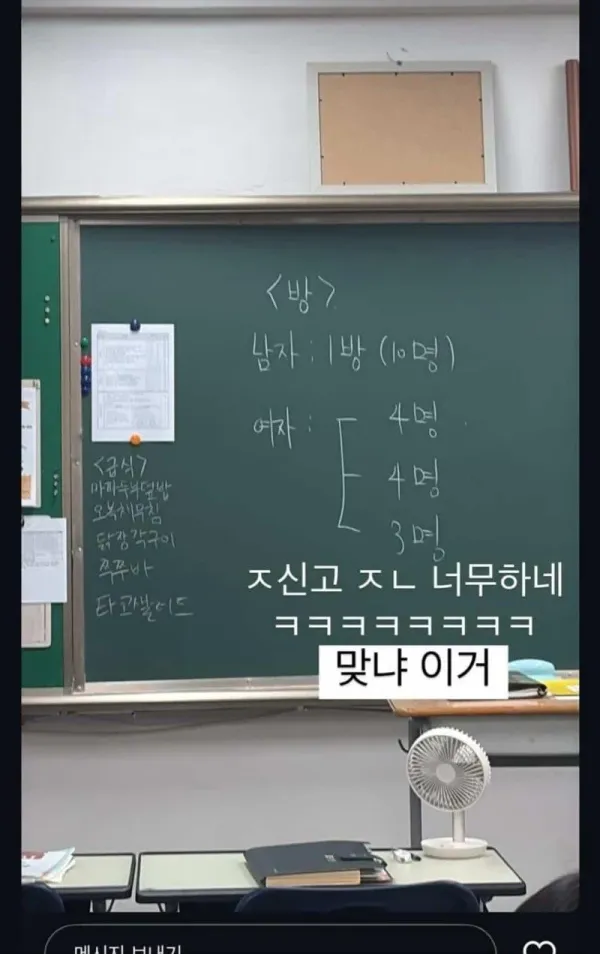 <방>
남자 : 1방 (10명)
여자 :
4명
4명
3명
<급식>
마파두부덮밥
오복채무침
닭장각구이
쭈쭈바
타코샐러드
ㅈ신고 ㅈㄴ 너무하네
ㅋㅋㅋㅋㅋㅋㅋㅋ
맞냐 이거